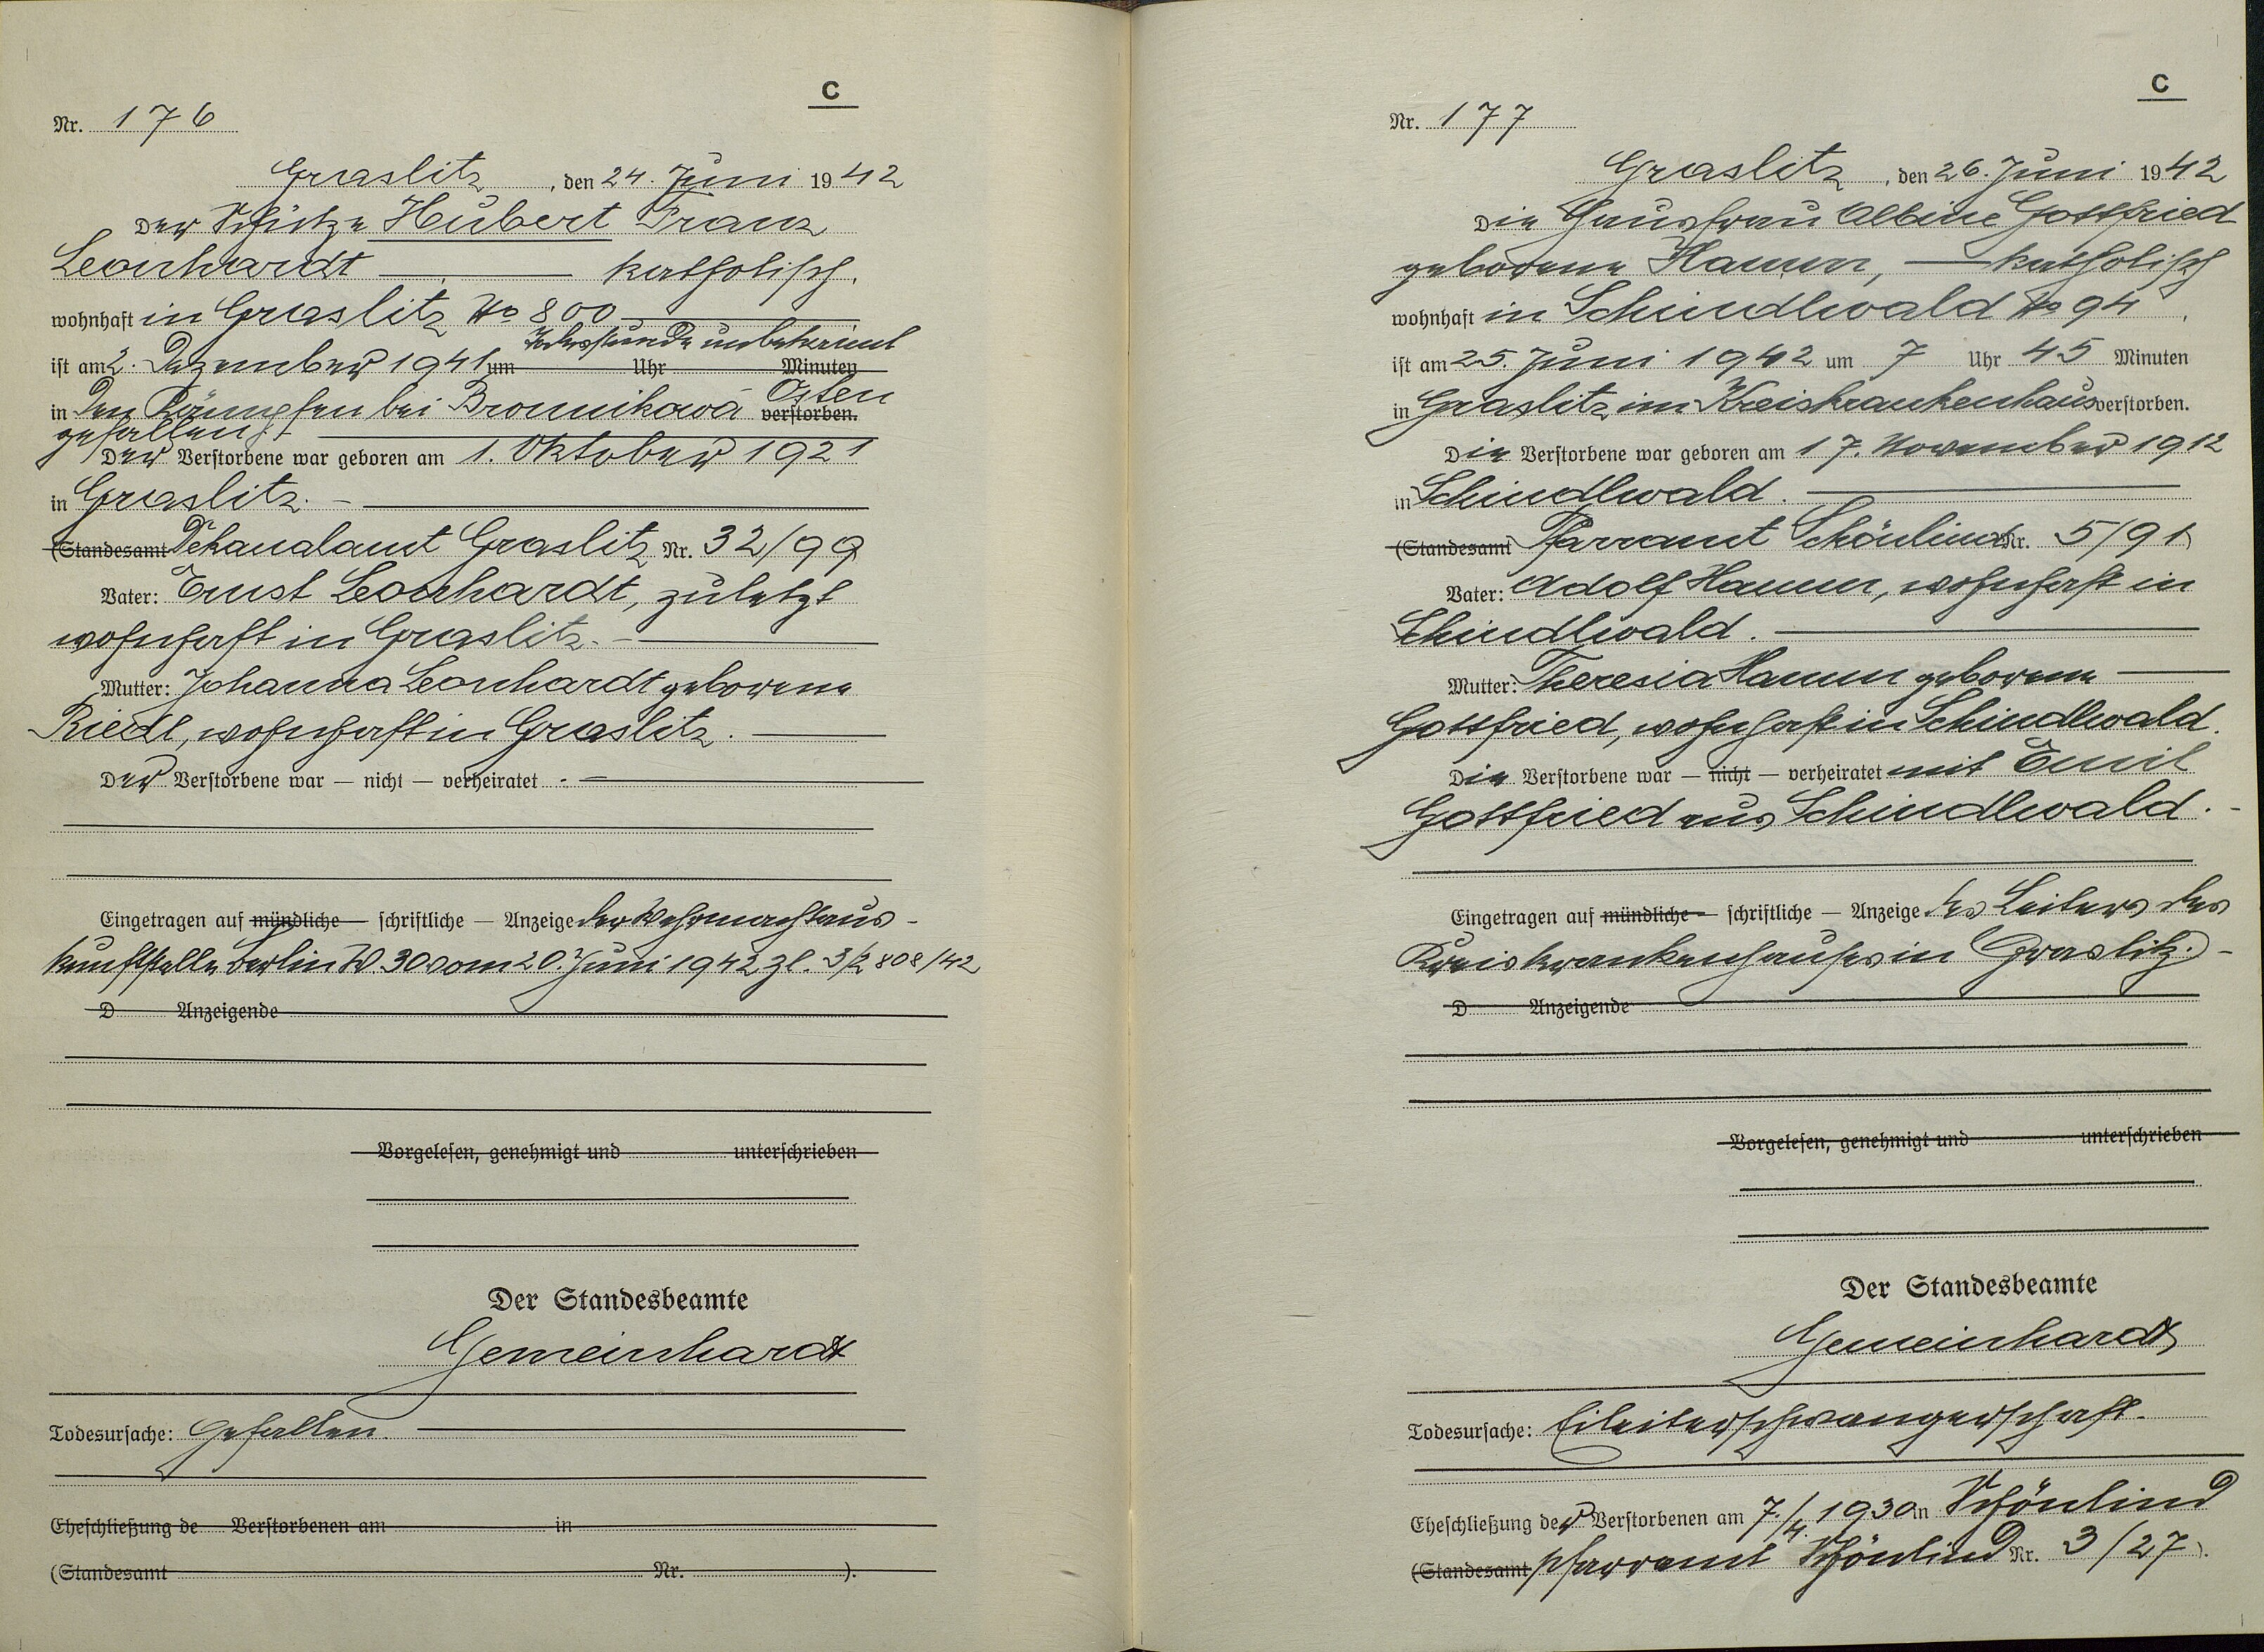 C
Nr. 176
Graslitz, den 24. Juni 1942
Der Schütze Hubert Franz
Leonhardt katholisch,
wohnhaft in Graslitz No 800
Todesstunde unbekannt
ist am 2. Dezember 1941 um Uhr Minuten
Osten
in den Kämpfen bei Bronnikowa verstorben.
gefallen.
Der Verstorbene war geboren am 1. Oktober 1921
in Graslitz.
(Standesamt Dekanalamt Graslitz Nr. 32/99
Vater: Ernst Leonhardt, zuletzt
wohnhaft in Graslitz.
Mutter: Johanna Leonhardt geborene
Riedl, wohnhaft in Graslitz.
Der Verstorbene war — nicht — verheiratet
Eingetragen auf mündliche — schriftliche — Anzeige der Wehrmachtaus-
kunftstelle Berlin W. 30 vom 20. Juni 1942 Zl. 808/42
D Anzeigende
Vorgelesen, genehmigt und unterschrieben
Der Standesbeamte
Gemeinhardt
Todesursache: Gefallen.
Eheschließung de Verstorbenen am in
(Standesamt Nr. ).
C
Nr. 177
Graslitz, den 26. Juni 1942
Die Hausfrau Albine Gottfried
geborene Hamm, katholisch
wohnhaft in Schindlwald No 94,
ist am 25. Juni 1942 um 7 Uhr 45 Minuten
in Graslitz im Kreiskrankenhaus verstorben.
Die Verstorbene war geboren am 17. November 1912
in Schindlwald.
(Standesamt Pfarramt Schönlind Nr. 5/91)
Vater: Adolf Hamm, wohnhaft in
Schindlwald.
Mutter: Theresia Hamm geborene
Gottfried, wohnhaft in Schindlwald.
Die Verstorbene war — nicht — verheiratet mit Emil
Gottfried aus Schindlwald.
Eingetragen auf mündliche — schriftliche — Anzeige des Leiters des
Kreiskrankenhauses in Graslitz.
D Anzeigende
Vorgelesen, genehmigt und unterschrieben
Der Standesbeamte
Gemeinhardt
Todesursache: Eileiterschwangerschaft.
Eheschließung der Verstorbenen am 7./4. 1930 in Schönlind
(Standesamt Pfarramt Schönlind Nr. 3/27).